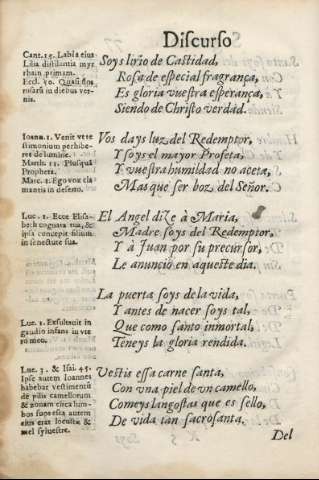 Discurso
Cant. 15. Labia eius
Lilia distillantia myr
rham primam.
Eccl. 50. Quasi flos
rosarū in diebus ver-
nis.
Soys lirio de Castidad,
Rosa de especial fragrança,
Es gloria vuestra esperança,
Siendo de Christo verdad.
Ioann. 1. Venit vt te
stimonium perhibe-
ret de lumine.
Matth. 11. Plusquā
Propheta.
Marc. 1. Ego vox cla
mantis in deserto.
Vos days luz del Redemptor,
Y soys el mayor Profeta,
Y vuestra humildad no aceta,
Mas que ser boz del Señor.
Luc. 1. Ecce Elisa-
beth cognata tua, &
ipsa concepit filium
in senectute sua.
El Angel dize à Maria,
Madre soys del Redemptor,
Y à Juan por su precursor,
Le anunciò en aqueste dia.
La puerta soys de la vida,
Y antes de nacer soys tal,
Que como santo inmortal,
Teneys la gloria rendida.
Luc. 1. Exsultauit in
gaudio infans in vte
ro meo.
Luc. 3. & Isai. 45.
Ipse autem Ioannes
habebat vestimentū
de pilis camellorum
& zonam circa lum-
bos suos esca autem
eius erat locustæ &
mel syluestre.
Vestis essa carne santa,
Con vna piel de vn camello,
Comeys langostas que es sello,
De vida tan sacrosanta.
Del